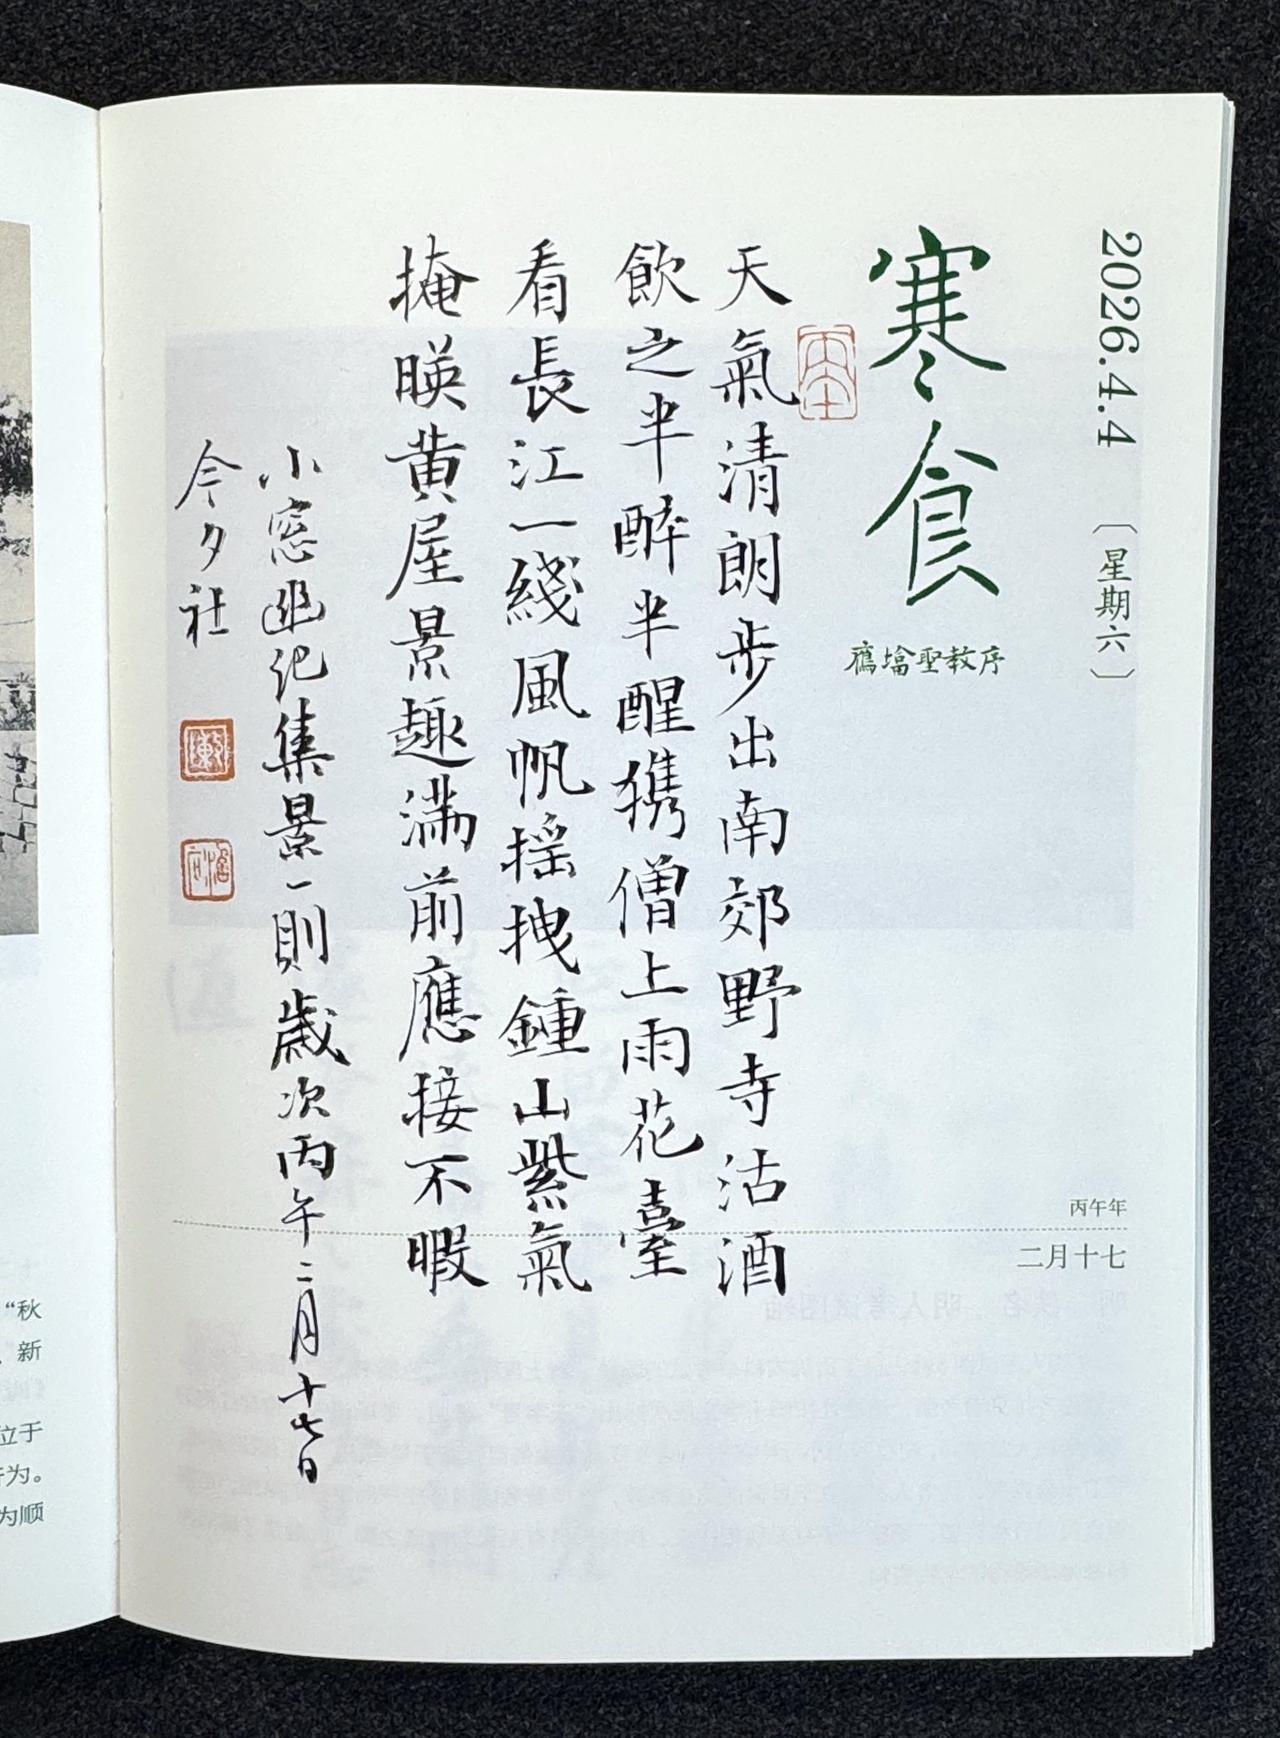 2026.4.4〔星期六〕
寒食
雁塔聖教序
天氣清朗步出南郊野寺沽酒
飲之半醉半醒攜僧上雨花臺
看長江一綫風帆搖拽鍾山紫氣
掩暎黄屋景趣滿前應接不暇
小窓幽記集景一則歲次丙午二月十七日
今夕社
丙午年
二月十七
“秋
新
位于
行为。
为顺